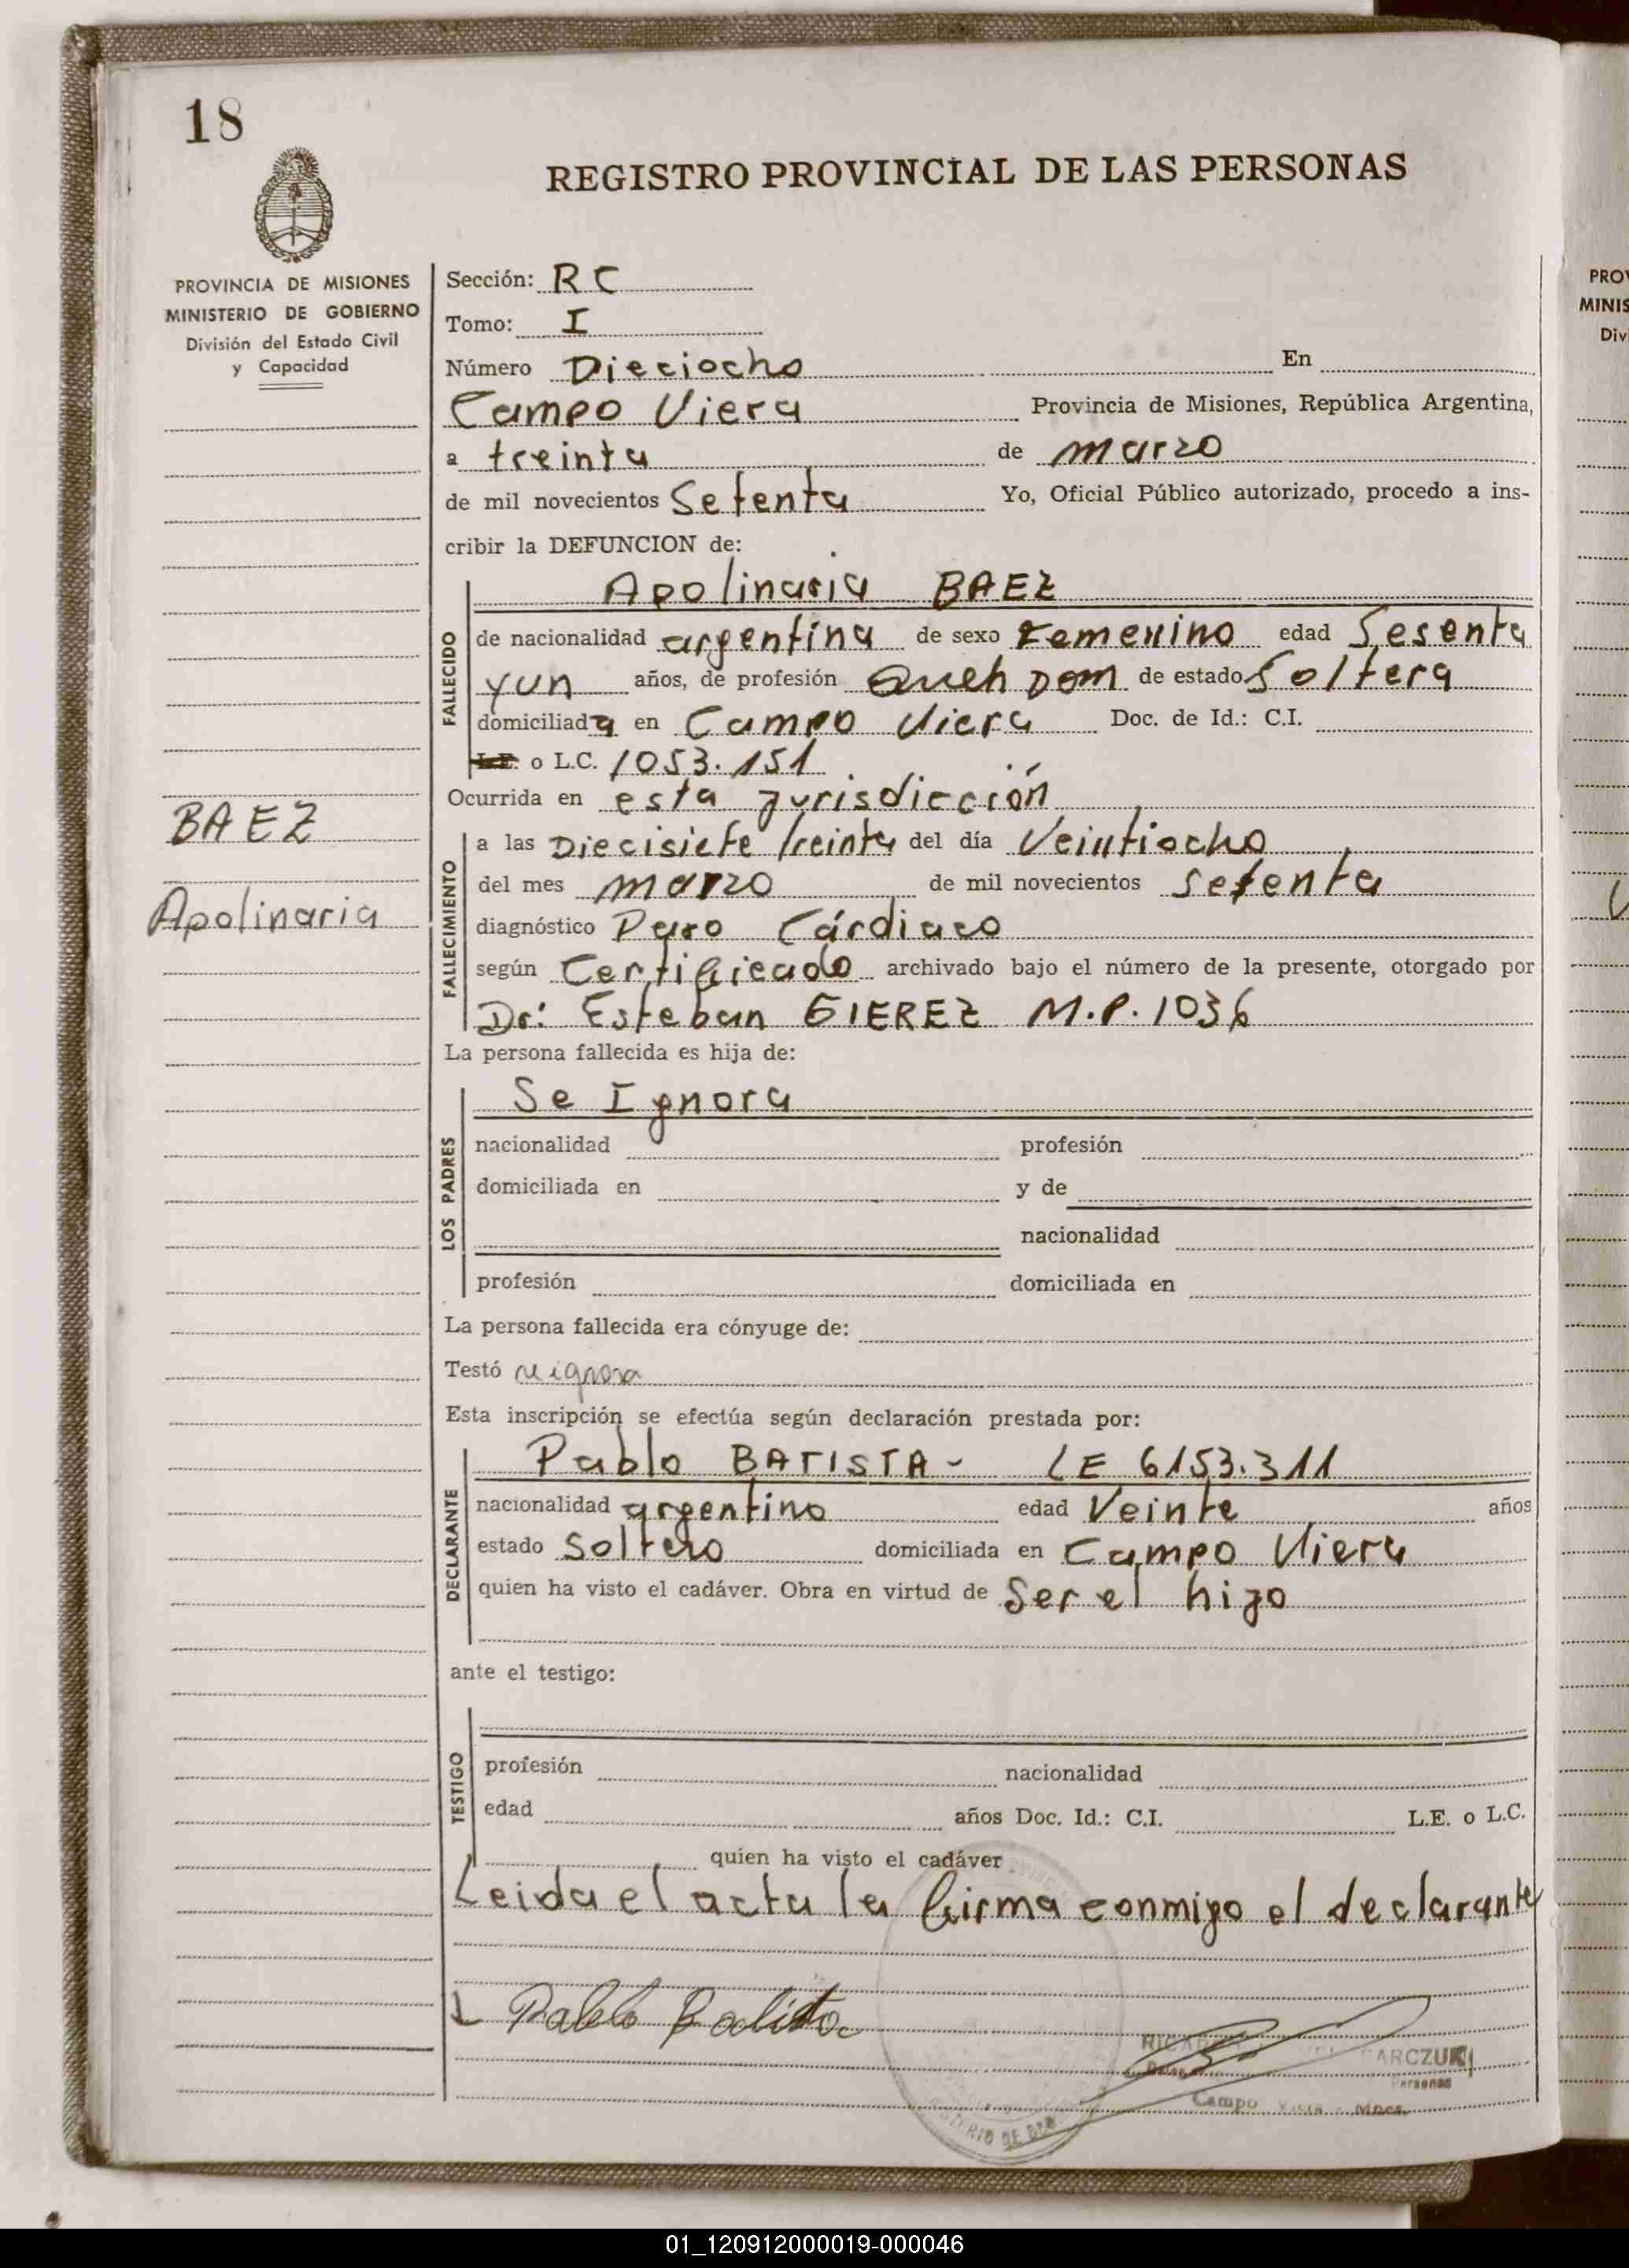 18
REGISTRO PROVINCIAL DE LAS PERSONAS
PROVINCIA DE MISIONES
MINISTERIO DE GOBIERNO
División del Estado Civil
y Capacidad
Sección: RC
Tomo: I
Número Dieciocho En
Campo Viera Provincia de Misiones, República Argentina,
a treinta de marzo
de mil novecientos Setenta Yo, Oficial Público autorizado, procedo a ins-
cribir la DEFUNCION de:
FALLECIDO
Apolinaria BAEZ
de nacionalidad argentina de sexo Femenino edad Sesenta
y un años, de profesión Queh Dom de estado Soltera
domiciliada en Campo Viera Doc. de Id.: C.I.
L.E. o L.C. 1053.151
Ocurrida en esta jurisdicción
BAEZ
Apolinaria
FALLECIMIENTO
a las Diecisiete treinta del día Veintiocho
del mes marzo de mil novecientos setenta
diagnóstico Paro Cárdiaco
según Certificado archivado bajo el número de la presente, otorgado por
Dr: Esteban GIEREZ M.P. 1036
La persona fallecida es hija de:
LOS PADRES
Se Ignora
nacionalidad profesión
domiciliada en y de
nacionalidad
profesión domiciliada en
La persona fallecida era cónyuge de:
Testó se ignora
Esta inscripción se efectúa según declaración prestada por:
DECLARANTE
Pablo BATISTA - LE 6153.311
nacionalidad argentino edad Veinte años
estado Soltero domiciliada en Campo Viera
quien ha visto el cadáver. Obra en virtud de Ser el hijo
ante el testigo:
TESTIGO
profesión nacionalidad
edad años Doc. Id.: C.I. L.E. o L.C.
quien ha visto el cadáver
Leida el acta la firma conmigo el declarante
Pablo Batista
Campo Viera - Mnes.
PROV
MINIS
Divi
01_120912000019-000046